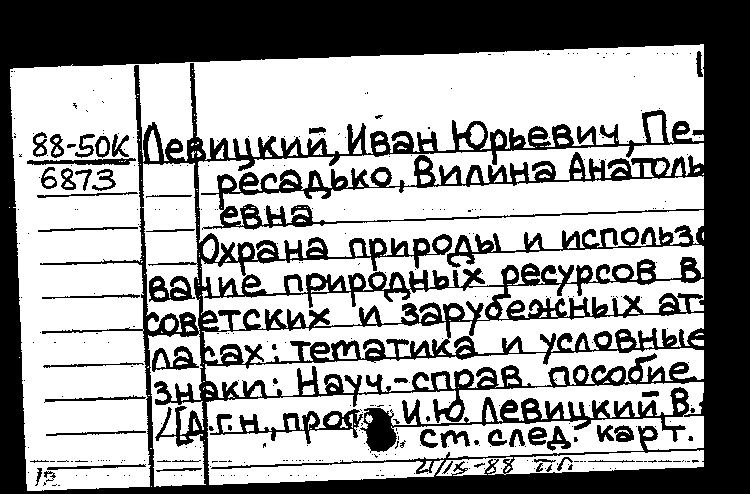 88-50К Левицкий, Иван Юрьевич, Пе-
6873 ресадько, Вилина Анатоль
евна.
Охрана природы и использо
вание природных ресурсов в
советских и зарубежных ат-
ласах: тематика и условные
знаки: Науч.-справ. пособие
/[Д.г.н., проф. И.Ю. Левицкий, В.
см. след. карт.
21/IX-88